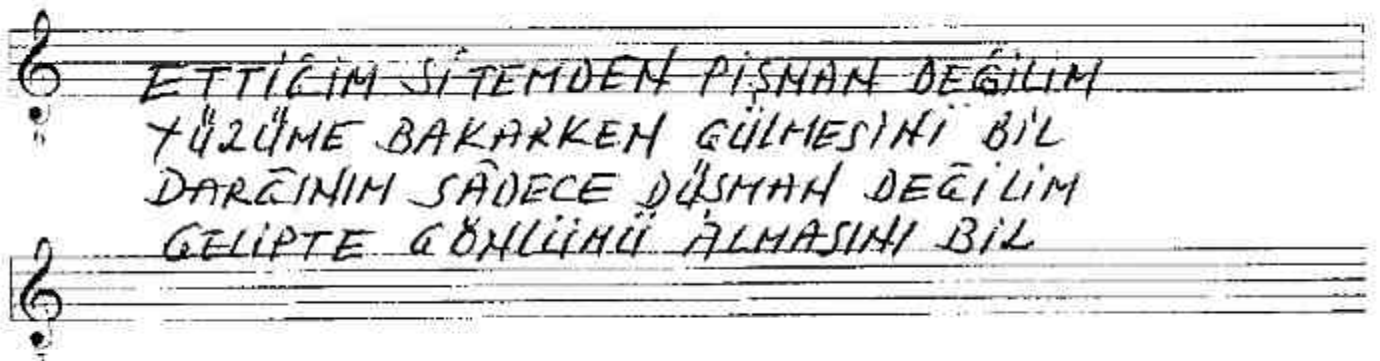 ETTİĞİM SİTEMDEN PİŞMAN DEĞİLİM
YÜZÜME BAKARKEN GÜLMESİNİ BİL
DARGINIM SÂDECE DÜŞMAN DEĞİLİM
GELİPTE GÖNLÜMÜ ALMASINI BİL